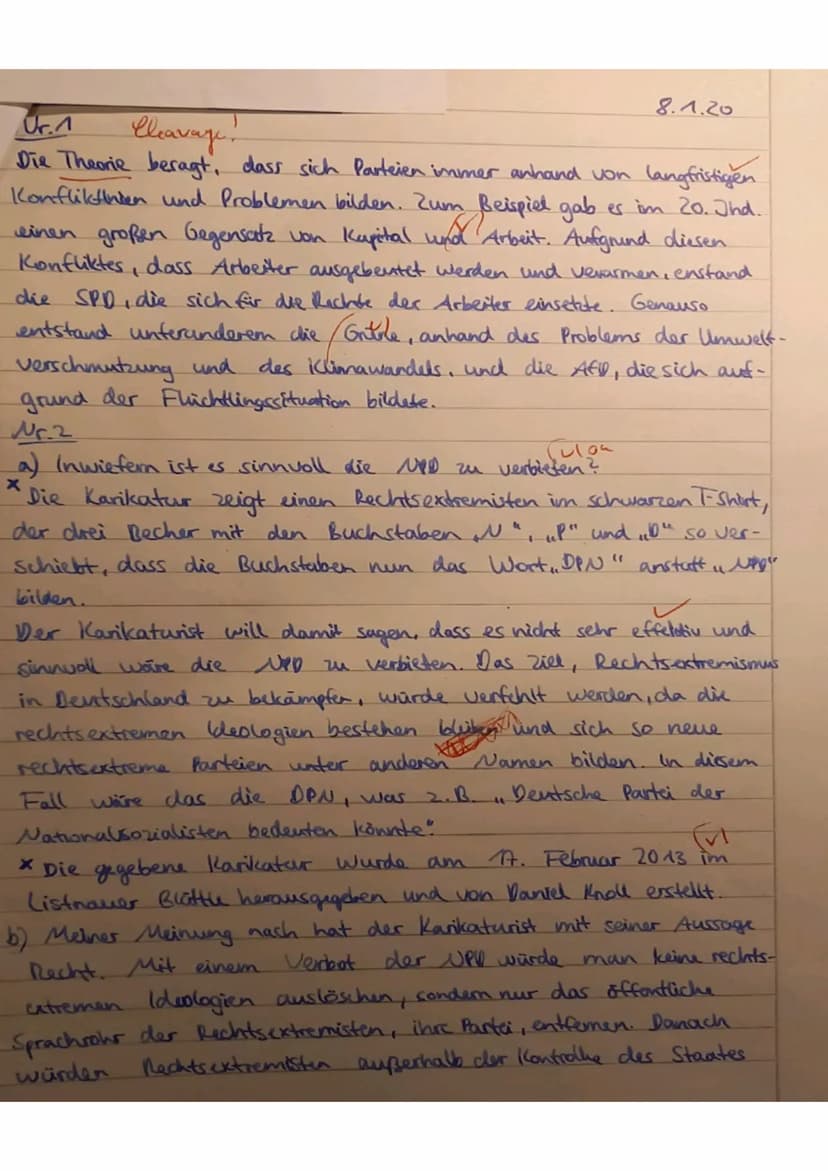 8.1.20
Nr.1 Cleavage!
Die Theorie besagt, dass sich Parteien immer anhand von langfristigen
Konfliktlinien und Problemen bilden. Zum Beispiel gab es im 20. Jhd.
einen großen Gegensatz von Kapital und Arbeit. Aufgrund diesen
Konfliktes, dass Arbeiter ausgebeutet werden und verarmen, enstand
die SPD, die sich für die Rechte der Arbeiter einsetzte. Genauso
entstand unteranderem die Grüne, anhand des Problems der Umwelt-
verschmutzung und des Klimawandels, und die AfD, die sich auf-
grund der Flüchtlingssituation bildete.
Nr.2
a) Inwiefern ist es sinnvoll die NPD zu verbieten?
* Die Karikatur zeigt einen Rechtsextremisten im schwarzen T-Shirt,
der drei Becher mit den Buchstaben „N“, „P“ und „D“ so ver-
schiebt, dass die Buchstaben nun das Wort „DPN“ anstatt „NPD“
bilden.
Der Karikaturist will damit sagen, dass es nicht sehr effektiv und
sinnvoll wäre die NPD zu verbieten. Das Ziel, Rechtsextremismus
in Deutschland zu bekämpfen, würde verfehlt werden, da die
rechtsextremen Ideologien bestehen bleiben und sich so neue
rechtsextreme Parteien unter anderen Namen bilden. In diesem
Fall wäre das die DPN, was z.B. „Deutsche Partei der
Nationalsozialisten bedeuten könnte“.
* Die gegebene Karikatur wurde am 17. Februar 2013 im
herausgegeben und von Daniel Knoll erstellt.
b) Meiner Meinung nach hat der Karikaturist mit seiner Aussage
Recht. Mit einem Verbot der NPD würde man keine rechts-
extremen Ideologien auslöschen, sondern nur das öffentliche
Sprachrohr der Rechtsextremisten, ihre Partei, entfernen. Danach
würden Rechtsextremisten außerhalb der Kontrolle des Staates